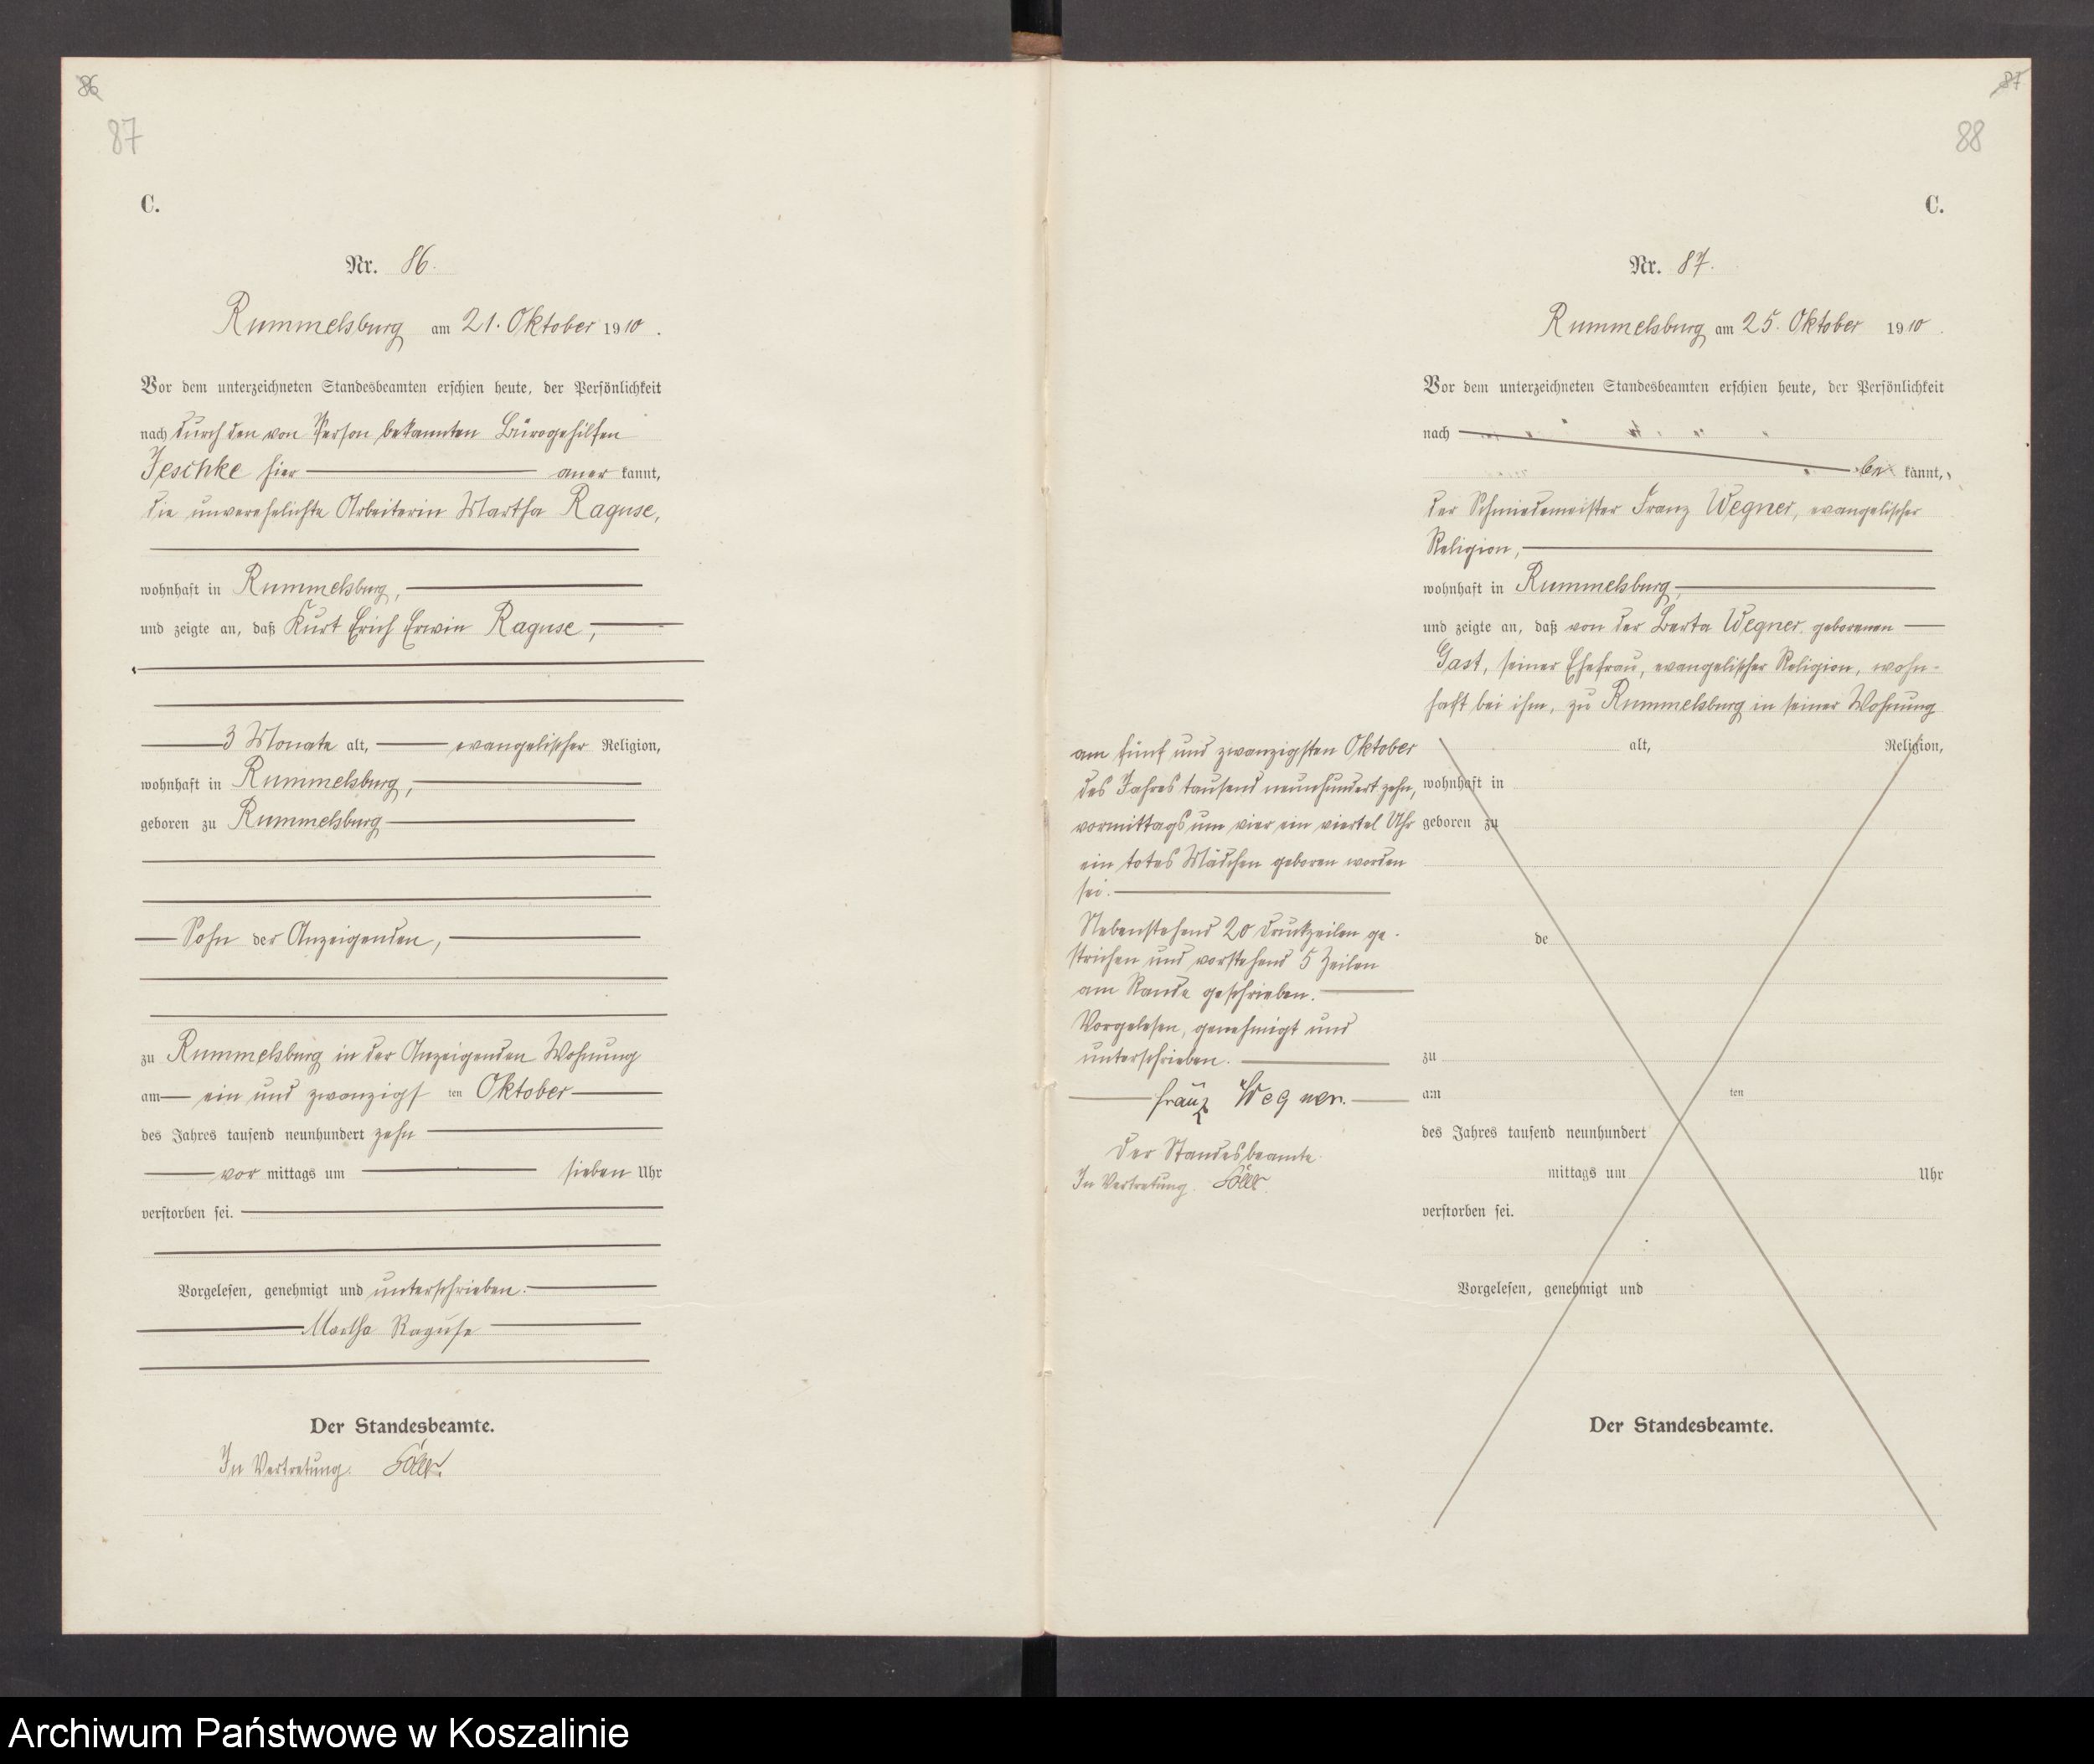 86
87
C.
Nr. 86.
Rummelsburg am 21. Oktober 1910.
Vor dem unterzeichneten Standesbeamten erschien heute, der Persönlichkeit
nach durch den von Person bekannten Bürogehilfen
Jeschke hier aner kannt,
die unverehelichte Arbeiterin Martha Raguse,
wohnhaft in Rummelsburg,
und zeigte an, daß Kurt Erich Erwin Raguse,
3 Monate alt, evangelischer Religion,
wohnhaft in Rummelsburg,
geboren zu Rummelsburg
Sohn der Anzeigenden,
zu Rummelsburg in der Anzeigenden Wohnung
am ein und zwanzigsten Oktober
des Jahres tausend neunhundert zehn
vor mittags um sieben Uhr
verstorben sei.
Vorgelesen, genehmigt und unterschrieben.
Martha Raguse
Der Standesbeamte.
In Vertretung.
87
88
C.
Nr. 87.
Rummelsburg am 25. Oktober 1910.
Vor dem unterzeichneten Standesbeamten erschien heute, der Persönlichkeit
nach
be kannt,
der Schmiedemeister Franz Wegner, evangelischer
Religion,
wohnhaft in Rummelsburg,
und zeigte an, daß von der Berta Wegner geborenen
Gast, seiner Ehefrau, evangelischer Religion, wohn-
haft bei ihm, zu Rummelsburg in seiner Wohnung
am fünf und zwanzigsten Oktober
des Jahres tausend neunhundert zehn,
vormittags um vier ein viertel Uhr
ein totes Mädchen geboren worden
sei.
Nebenstehend 20 Druckzeilen ge-
strichen und vorstehend 5 Zeilen
am Rande geschrieben.
Vorgelesen, genehmigt und
unterschrieben.
Franz Wegner.
Der Standesbeamte.
In Vertretung.
alt, Religion,
wohnhaft in
geboren zu
de
zu
am ten
des Jahres tausend neunhundert
mittags um Uhr
verstorben sei.
Vorgelesen, genehmigt und
Der Standesbeamte.
Archiwum Państwowe w Koszalinie